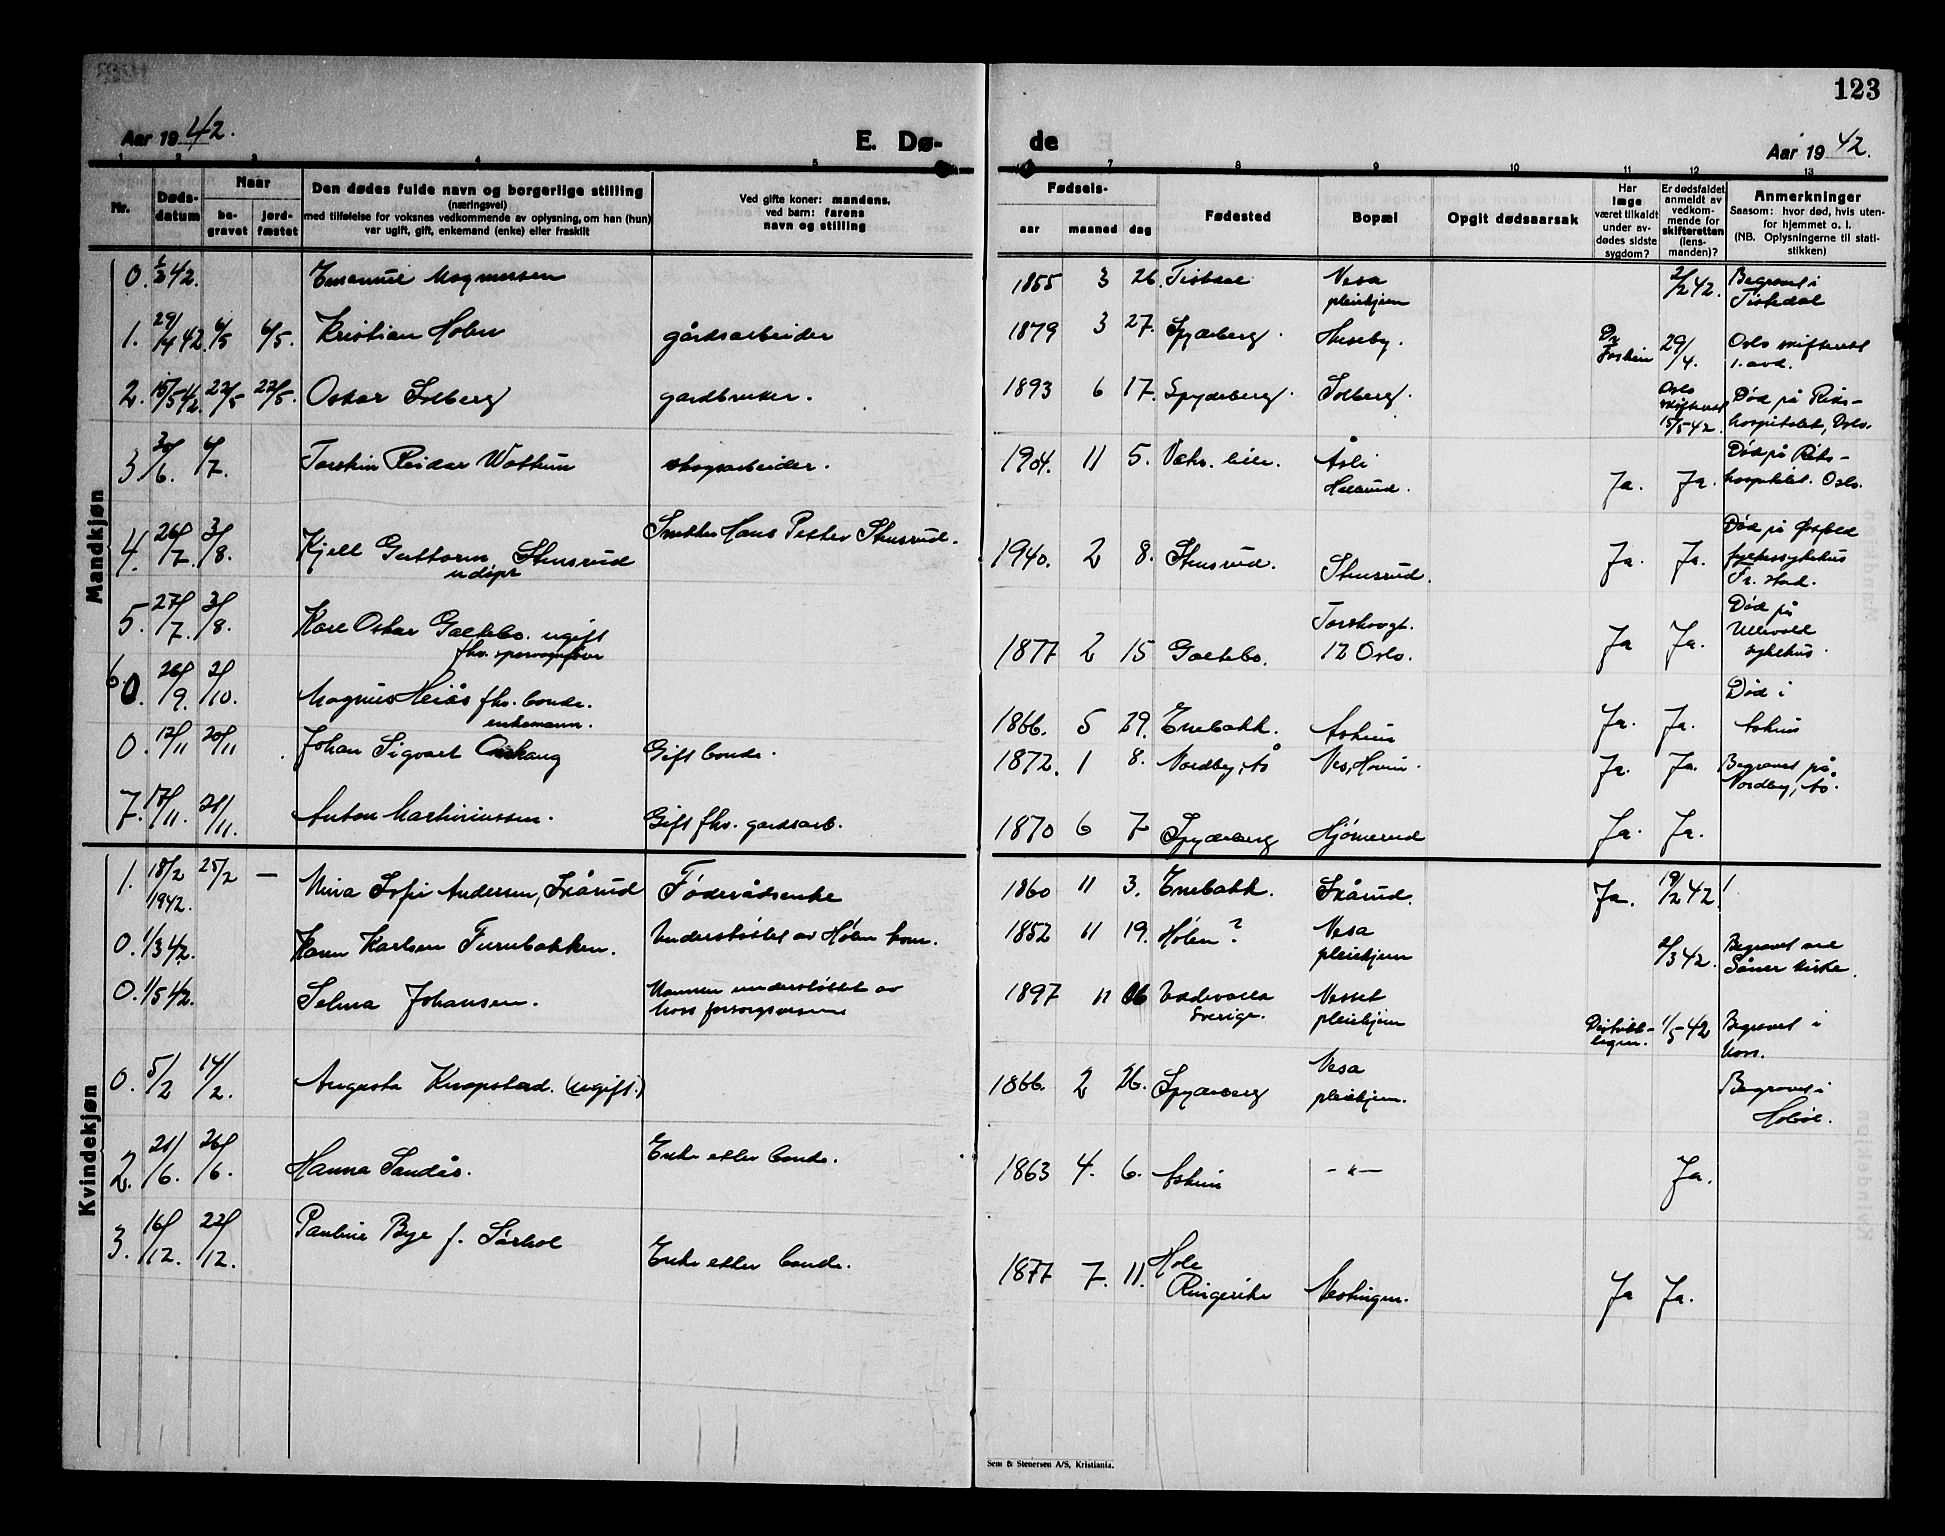 123
Aar 1942.
E. Dø-
de
Aar 1942.
1 2 3 4 5 7 8 9 10 11 12 13
Nr.
Døds-
datum
Naar
be-
gravet
jord-
fæstet
Den dødes fulde navn og borgerlige stilling
(næringsvei)
med tilføielse for voksnes vedkommende av oplysning, om han (hun)
var ugift, gift, enkemand (enke) eller fraskilt
Ved gifte koner: mandens,
ved barn: farens
navn og stilling
Fødsels-
aar maaned dag
Fødested
Bopæl
Opgit dødsaarsak
Har
læge
været tilkaldt
under av-
dødes sidste
sygdom?
Er dødsfaldet
anmeldt av
vedkom-
mende for
skifteretten
(lens-
manden)?
Anmerkninger
Saasom: hvor død, hvis uten-
for hjemmet o. l.
(NB. Oplysningerne til stati-
stikken)
Mandkjøn
0. 1/2 42. Emanuel Magnussen 1855 3 26. Tistedal Vesa pleiehjem 2/2 42. Begravet i Tistedal
1. 29/4 42. 6/5 6/5. Kristian Holen gårdsarbeider 1879 3 27. Spydeberg. Huseby. Dr 29/4. Oslo skifterett 1. avd.
2. 15/5 42. 22/5 22/5. Oskar Solberg gardbruker. 1893 6 17. Spydeberg. Solberg. Oslo skifterett 15/5 42. Død på Riks-hospitalet, Oslo.
3. 30/6. 6/7. Torstein Reidar skogsarbeider. 1904. 11 5. Åsli Ja. Ja. Død på Riks-hospitalet. Oslo.
4. 26/7. 3/8. Kjell Guttorm Stensrud udøpt Hans Petter Stensrud. 1940. 2 8. Stensrud. Stensrud. Ja. Ja. Død på Østfold fylkessykehus Fr. stad.
5. 27/7. 3/8. Karl Oskar Galtebo. ugift fhv. sporvognfører 1877 2 15 Galtebo. Torshovgt. 12 Oslo. Ja Ja. Død på Ullevold sykehus.
6. 0. 26/9. 2/10. Magnus Heiås fhv. bonde. enkemann. 1866. 5 29. Enebakk. Askim Ja. Ja. Død i Askim
0. 12/11 20/11. Johan Sigvart Gift bonde. 1872. 1 8. Nordby, Ås Ves, Hovin. Ja. Ja. Begravet på Nordby, Ås.
7. 17/11. 21/11. Anton Martiniussen. Gift fhv. gardsarb. 1870 6 7 Spydeberg Hjømerud Ja. Ja.
Kvindekjøn
1. 18/2 1942. 25/2 — Mina Sofie Andersen, Skårud Føderådsenke 1860 11 3. Enebakk. Skårud. Ja. 19/2 42.
0. 1/3 42. Karen Karlsen Furubakken. Understøttet av Hølen kom. 1852 11 19. Hølen? Vesa pleiehjem 2/3 42. Begravet ved Såner kirke.
0. 1/5 42. Selma Johansen. Mannen understøttet av Moss forsorgsvesen 1897 11 Uddevalla Sverige. Vesset pleiehjem Distriktslegen. 1/5 42 Begravet i Moss.
0. 5/2 14/2. Augusta Knapstad. (ugift.) 1866. 2 26. Spydeberg Vesa pleiehjem. Begravet i Hobøl.
2. 21/6. 26/6. Hanna Sandås. Enke etter bonde. 1863 4. 6. Askim — " — Ja.
3. 16/12. 22/12. Pauline Bye f. Sørhol Enke etter bonde. 1877 7. 11. Hole Ringerike Mestingen. Ja Ja.
Sem & Stenersen A/S, Kristiania.